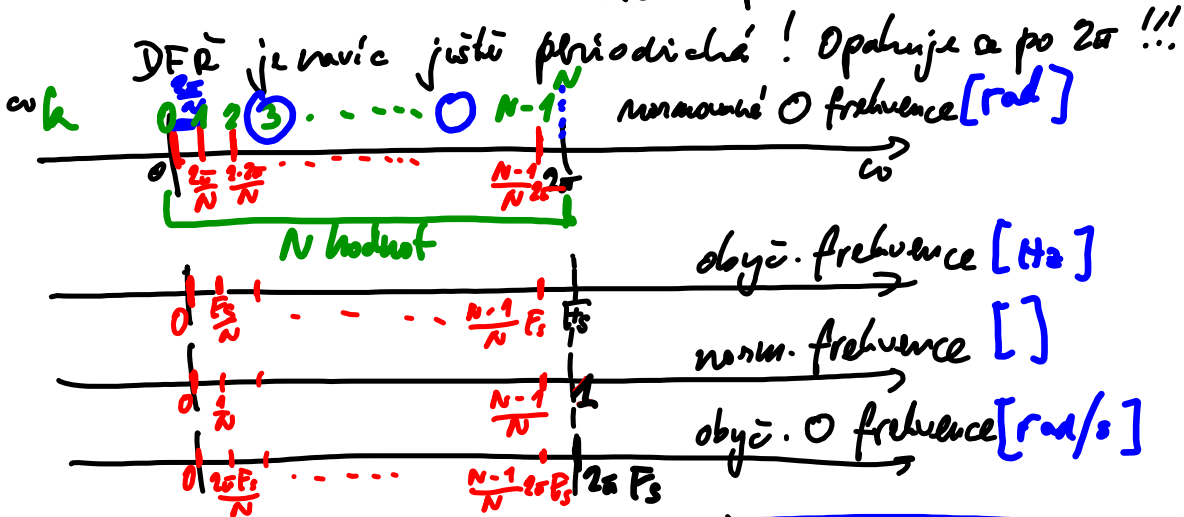 DFŘ je navíc ještě periodická! Opakuje se po 2π !!!
2π/N
N
k 0 1 2 3 . . . . . . N-1 normovaná O frekvence [rad]
0 2π/N 2·2π/N . . . . . . N-1/N 2π 2π ω
N hodnot
obyč. frekvence [Hz]
0 Fs/N . . . . N-1/N Fs Fs
norm. frekvence [ ]
0 1/N N-1/N 1
obyč. O frekvence [rad/s]
0 2πFs/N . . . . . N-1/N 2πFs 2π Fs